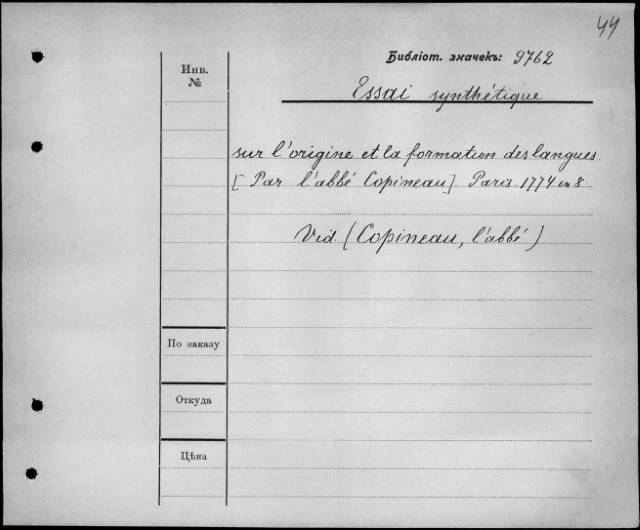 44
Библіот. значекъ: 9762
Инв.
№
Essai synthétique
sur l'origine et la formation des langues.
[Par l'abbé Copineau]. Paris. 1774 in 8
Vid. (Copineau, l'abbé)
По заказу
Откуда
Цѣна